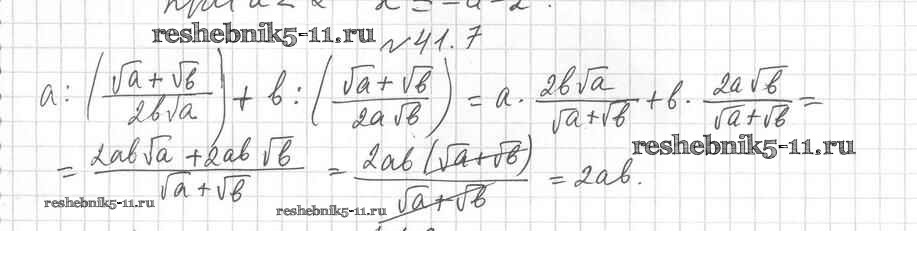 reshebnik5-11.ru
№41.7
a : ((√a + √b)/(2b√a)) + b : ((√a + √b)/(2a√b)) = a · (2b√a)/(√a + √b) + b · (2a√b)/(√a + √b) =
reshebnik5-11.ru
= (2ab√a + 2ab√b)/(√a + √b) = (2ab(√a + √b))/(√a + √b) = 2ab.
reshebnik5-11.ru
reshebnik5-11.ru